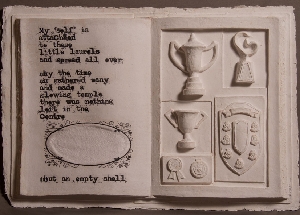 My "Self" is
attached
to these
little laurels
and spread all over
By the time
it gathered many
and made a
glowing temple
there was nothing
left in the
Centre
but an empty shell